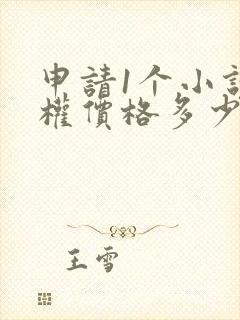 申請1个小
權價格多少
王雪